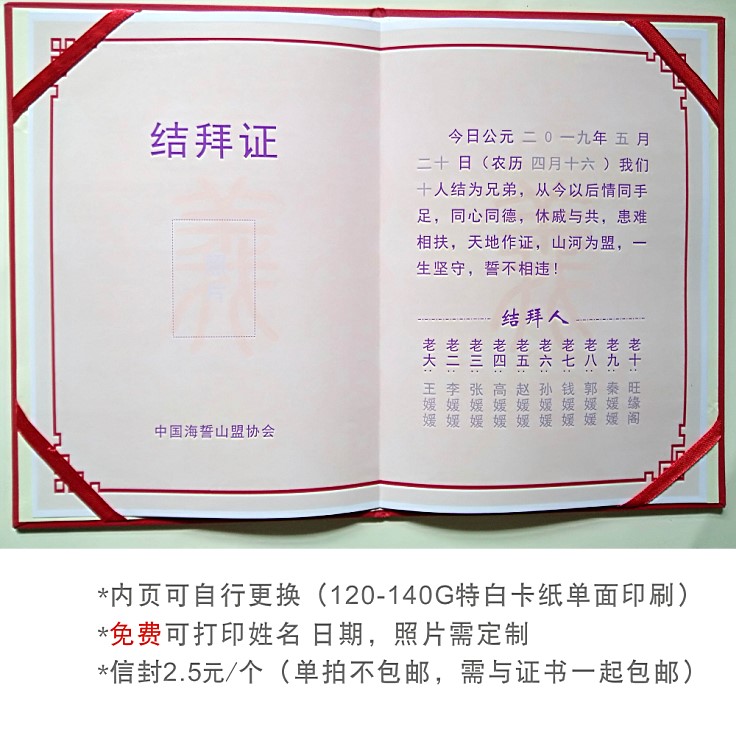 结拜证
中国海誓山盟协会
今日公元 二0一九年 五 月
二十 日（农历 四月十六 ）我们
十人结为兄弟，从今以后情同手
足，同心同德，休戚与共，患难
相扶，天地作证，山河为盟，一
生坚守，誓不相违！
结拜人
老大：王媛媛
老二：李媛媛
老三：张媛媛
老四：高媛媛
老五：赵媛媛
老六：孙媛媛
老七：钱媛媛
老八：郭媛媛
老九：秦媛媛
老十：旺缘阁
*内页可自行更换（120-140G特白卡纸单面印刷）
*免费可打印姓名 日期，照片需定制
*信封2.5元/个（单拍不包邮，需与证书一起包邮）